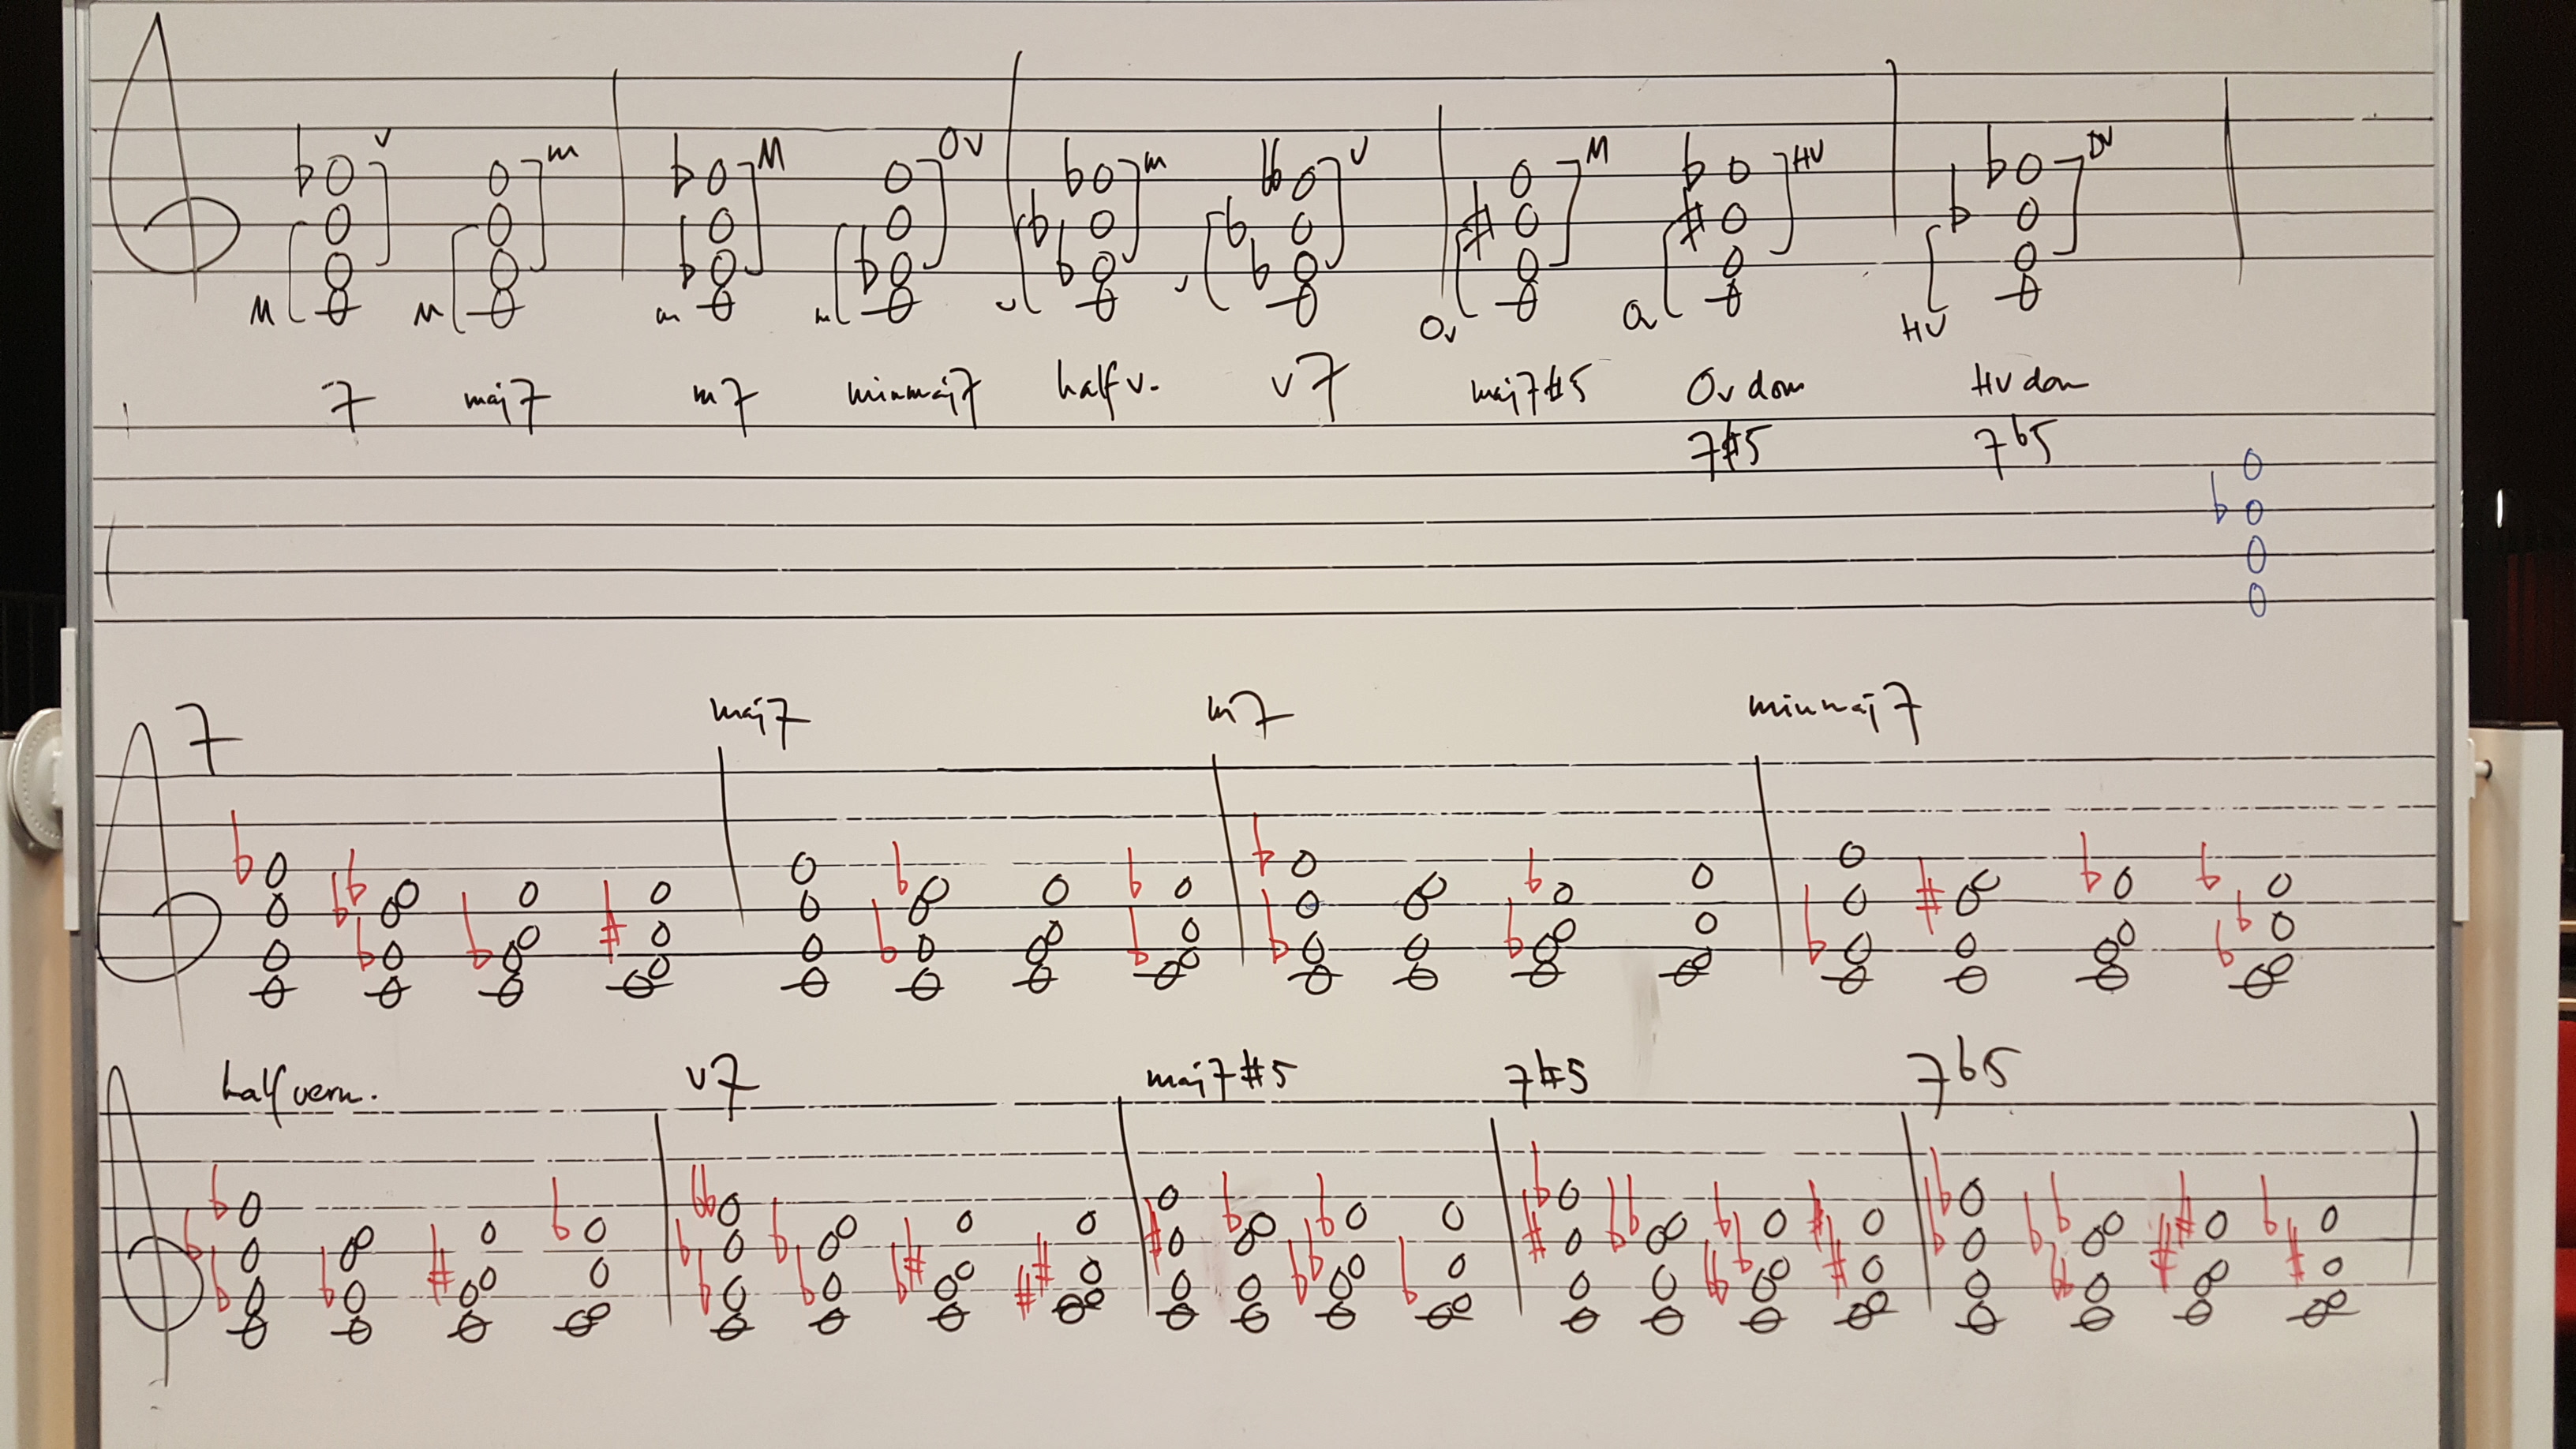 v m M Ov m v M HV DV
M M m m v v Ov Ov HV
7 maj7 m7 minmaj7 half v. v7 maj7#5 Ov dom HV dom
7#5 7b5
7 maj7 m7 minmaj7
half verm. v7 maj7#5 7#5 7b5